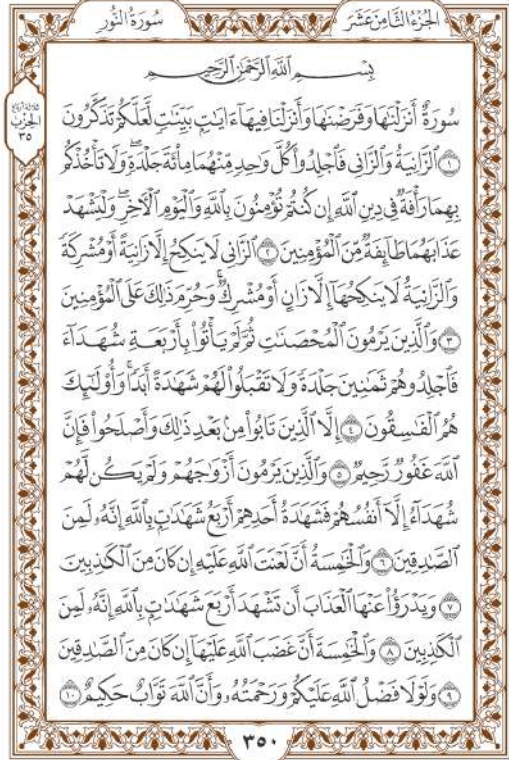 سُورَةُ النُّورِ
الجُزْءُ الثَّامِنَ عَشَرَ
بِسْمِ ٱللَّهِ ٱلرَّحْمَٰنِ ٱلرَّحِيمِ
سُورَةٌ أَنزَلْنَٰهَا وَفَرَضْنَٰهَا وَأَنزَلْنَا فِيهَآ ءَايَٰتٍۭ بَيِّنَٰتٍ لَّعَلَّكُمْ تَذَكَّرُونَ
١ ٱلزَّانِيَةُ وَٱلزَّانِى فَٱجْلِدُوا۟ كُلَّ وَٰحِدٍ مِّنْهُمَا مِا۟ئَةَ جَلْدَةٍ وَلَا تَأْخُذْكُم
بِهِمَا رَأْفَةٌ فِى دِينِ ٱللَّهِ إِن كُنتُمْ تُؤْمِنُونَ بِٱللَّهِ وَٱلْيَوْمِ ٱلْءَاخِرِ وَلْيَشْهَدْ
عَذَابَهُمَا طَآئِفَةٌ مِّنَ ٱلْمُؤْمِنِينَ ٢ ٱلزَّانِى لَا يَنكِحُ إِلَّا زَانِيَةً أَوْ مُشْرِكَةً
وَٱلزَّانِيَةُ لَا يَنكِحُهَآ إِلَّا زَانٍ أَوْ مُشْرِكٌ وَحُرِّمَ ذَٰلِكَ عَلَى ٱلْمُؤْمِنِينَ
٣ وَٱلَّذِينَ يَرْمُونَ ٱلْمُحْصَنَٰتِ ثُمَّ لَمْ يَأْتُوا۟ بِأَرْبَعَةِ شُهَدَآءَ
فَٱجْلِدُوهُمْ ثَمَٰنِينَ جَلْدَةً وَلَا تَقْبَلُوا۟ لَهُمْ شَهَٰدَةً أَبَدًا وَأُو۟لَٰٓئِكَ
هُمُ ٱلْفَٰسِقُونَ ٤ إِلَّا ٱلَّذِينَ تَابُوا۟ مِنۢ بَعْدِ ذَٰلِكَ وَأَصْلَحُوا۟ فَإِنَّ
ٱللَّهَ غَفُورٌ رَّحِيمٌ ٥ وَٱلَّذِينَ يَرْمُونَ أَزْوَٰجَهُمْ وَلَمْ يَكُن لَّهُمْ
شُهَدَآءُ إِلَّآ أَنفُسُهُمْ فَشَهَٰدَةُ أَحَدِهِمْ أَرْبَعُ شَهَٰدَٰتٍۭ بِٱللَّهِ إِنَّهُۥ لَمِنَ
ٱلصَّٰدِقِينَ ٦ وَٱلْخَٰمِسَةُ أَنَّ لَعْنَتَ ٱللَّهِ عَلَيْهِ إِن كَانَ مِنَ ٱلْكَٰذِبِينَ
٧ وَيَدْرَؤُا۟ عَنْهَا ٱلْعَذَابَ أَن تَشْهَدَ أَرْبَعَ شَهَٰدَٰتٍۭ بِٱللَّهِ إِنَّهُۥ لَمِنَ
ٱلْكَٰذِبِينَ ٨ وَٱلْخَٰمِسَةَ أَنَّ غَضَبَ ٱللَّهِ عَلَيْهَآ إِن كَانَ مِنَ ٱلصَّٰدِقِينَ
٩ وَلَوْلَا فَضْلُ ٱللَّهِ عَلَيْكُمْ وَرَحْمَتُهُۥ وَأَنَّ ٱللَّهَ تَوَّابٌ حَكِيمٌ ١٠
الحِزْب
٣٥
٣٥٠